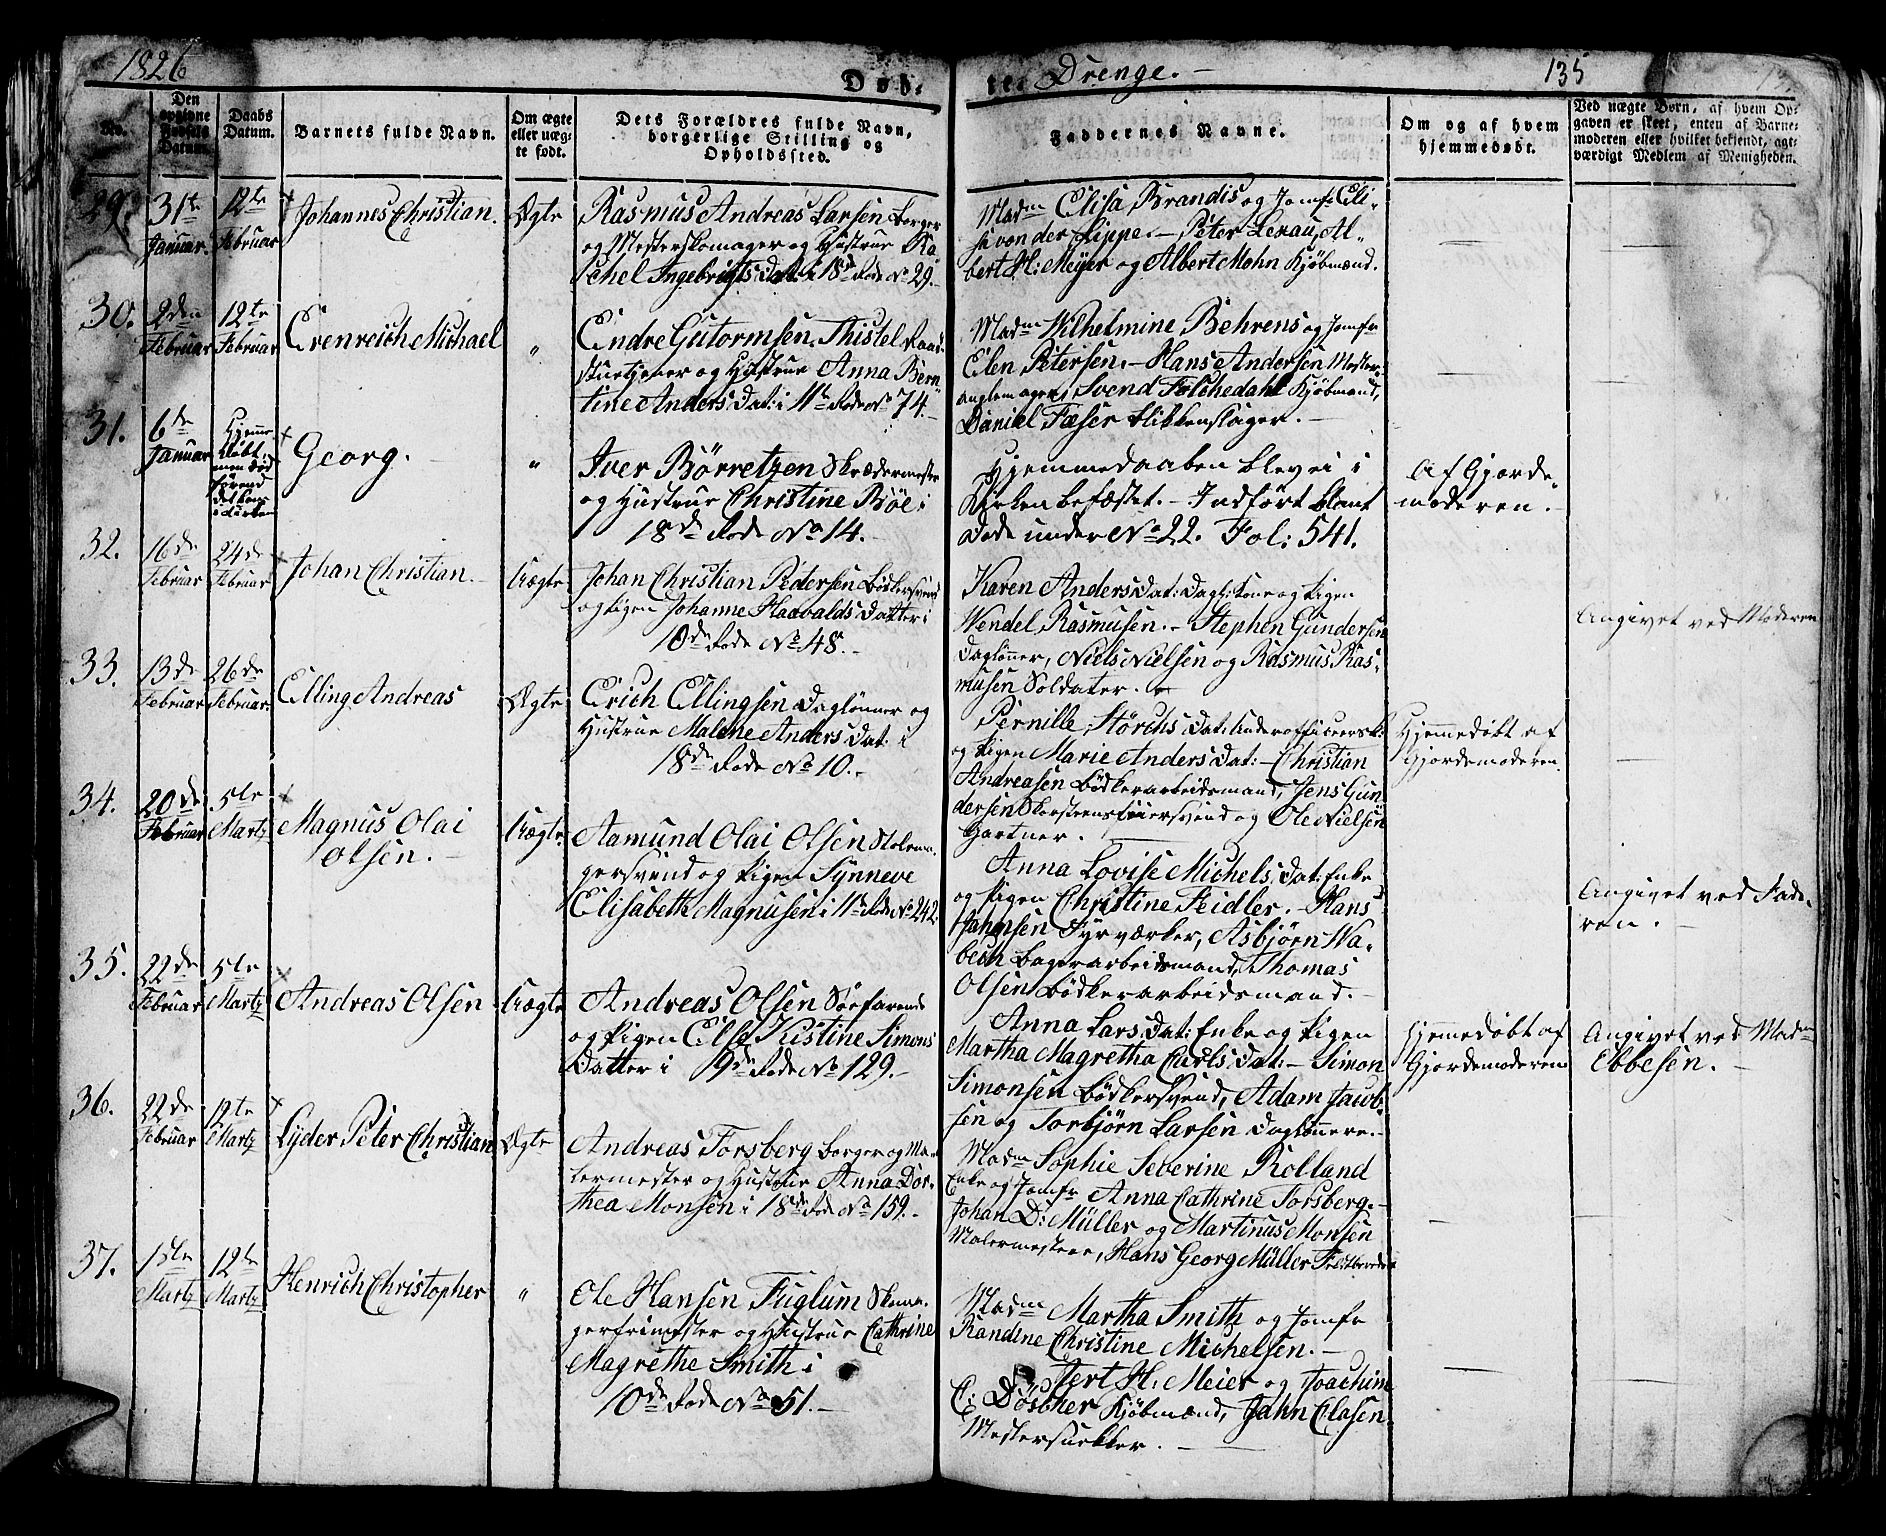 1826
Døb-
te Drenge.
135
No.
Den opgivne Fødsels Datum.
Daabs Datum.
Barnets fulde Navn.
Om ægte eller uægte født.
Dets Forældres fulde Navn, borgerlige Stilling og Opholdssted.
Faddernes Navne.
Om og af hvem hjemmedøbt.
Ved uægte Børn, af hvem Opgaven er skeet, enten af Barnemoderen eller hvilket bekjendt, agtværdigt Medlem af Menigheden.
29.
31te Januar.
12te Februar
Johannes Christian.
Ægte
Rasmus Andreas Larsen Borger
og Mesterskomager og Hustrue Ra
chel Ingebrigts Dat: i 18de Rode No 29.
Madm Elisa Brandis og Jomf: Eli-
se von der Lippe. - Peter Lexau, Al-
bert H: Meyer og Albert Mohn Kjøbmænd.
30.
2den Februar
12te Februar
Erenreich Michael
"
Endre Gutormsen Thistel Raad-
stuetjener og Hustrue Anna Bern
tine Anders Dat: i 11te Rode No 74.
Madm Wilhelmine Behrens og Jomfr
Elen Petersen. - Hans Andersen Mester-
Svend Folchedahl Kjøbmand,
Daniel Fæser Blikkenslager. -
31.
6te Januar
Hjemme-
døbt,
men død
førend
det kom
i Kirken
Georg.
"
Iver Børretzen Skrædermester
og Hustrue Christine Bøe i
18de Rode No 14.
Hjemmedaaben blev ei i
Kirken befæstet. - Indført blant
Døde under No 22. Fol: 541.
Af Gjorde-
moderen. -
32.
16de Februar
24de Februar
Johan Christian.
Uægte
Johan Christian Pedersen Bødkersvend
og Pigen Johanne Haavalds Datter i
10de Rode No 48. -
Karen Anders Dat: Dagl: Kone og Pigen
Wendel Rasmusen. - Stephen Gundersen
Dagløner, Niels Nielsen og Rasmus Ras-
musen Soldater.
Angivet ved Moderen
33.
13de Februar
26de Februar.
Elling Andreas
Ægte
Erich Ellingsen Dagløner og
Hustrue Malene Anders Dat: i
18de Rode No 10. -
Pernille Størchs Dat: Underofficeersk:
og Pigen Marie Anders Dat: - Christian
Andreasen Bødkerarbeidsmand, Jens Gun
dersen Skorsteensfeiersvend og Ole Nielsen
Gartner.
Hjemmedøbt af
Gjordemoderen.
34.
20de Februar
5te Martz
Magnus Olai
Olsen. -
Uægte
Aamund Olai Olsen Stolema-
gersvend og Pigen Synneve
Elisabeth Magnusen i 11te Rode No 242.
Anna Lovise Michels Dat: Enke
og Pigen Christine Feidler. - Hans
Johnsen Fyrværker, Asbjørn Wa-
bech Bagerarbeidsmand, Thomas
Olsen Bødkerarbeidsmand. -
Angivet ved Fade-
ren. -
35.
22de Februar
5te Martz
Andreas Olsen
Uægte
Andreas Olsen Søefarende
og Pigen Else Kistine Simons
Datter i 9de Rode No 129. -
Anna Lars Dat: Enke og Pigen
Martha Magretha Carls Dat: - Simon
Simonsen Bødkersvend, Adam Jacob-
sen og Torbjørn Larsen Dagløner. -
Hjemmedøbt af
Gjordemoderen
Angivet ved Madm
Ebbesen. -
36.
22de Februar
12te Martz
Lyder Peter Christian
Ægte
Andreas Forsberg Borger og Ma-
lermester og Hustrue Anna Dor-
thea Monsen i 18de Rode No 159. -
Madm Sophie Severine Rolland
Enke og Jomfr Anna Cathrine Forsberg. -
Johan D: Müller og Martinus Monsen
Malermestere, Hans Georg Müller
37.
1ste Martz
12te Martz
Henrich Christopher
"
Ole Hansen Fuglum Skoma-
gerfrimester og Hustrue Cathrine
Magrethe Smith i
10de Rode No 51. -
Madm Martha Smith og Jomfr
Randine Christine Michelsen. -
Gert H. Meier og Joachim
C: Döscher Kjøbmænd, Jahn Clasen
Mestersnekker. -